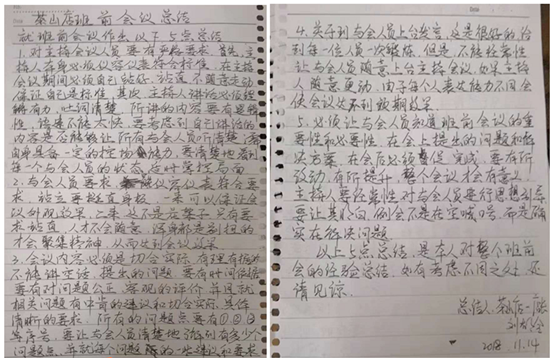 茶山店班前会议总结
就班前会议作出以下5点总结
1.对主持会议人员要有严格要求,首先主
持人在身必须仪容仪表符合标准,在主持
会议期间必须自己站好,站直不随意走动
保证自己是标准,其次主持人讲话必须铿
锵有力,吐词清楚,所讲的内容要有逻辑
性,语速不能太快,要考虑到自己讲话的
内容是否能够让所有与会人员听清楚,
同时具备一定的控场能力,要清楚地看到
每一个与会人员的状态,及时掌控局面
2.与会人员要求 仪容仪表符合要
求,站立要挺直身板,一来可以保证会
议外观效果,二来这不是花架子,只有要
求站直,人才不会随意,浑身都是别扭的
才会聚集精神,从而达到会议效果
3.会议内容必须是切合实际,有理有据,
不能讲空话,提出的问题,要有时间依据
要有对问题公正、客观的评价,并且就
相关问题点有中肯的建议和切合实际,具体
清晰的要求,所有的问题点要有①②③
等序号,要让与会人员清楚地 到有多少个
问题点,并就每个问题 的一些建议和要求
4.关于到与会人员上台发言,这是很好的给
到每一位人员一次锻炼,但是,不能经常性
让与会人员随意上台主持会议,如果主持
人随意更动,由于每个人表达能力不同会
使会议达不到预期效果.
5.必须让与会人员知道班前会议的重
要性和必要性,在会上提出的问题和解
决方案,在会后必须督促完成,要有所
改动,有所提升,整个会议才会有意义,
主持人要经常性对与会人员进行思想引导
要让其明白,例会不是在空喊口号,都是确确
实实在解决问题
以上5点总结,是本人对整个班前
会的经验总结,如有考虑不周之处,还
请见谅.
总结人:茶山店—店长
2018 11.14